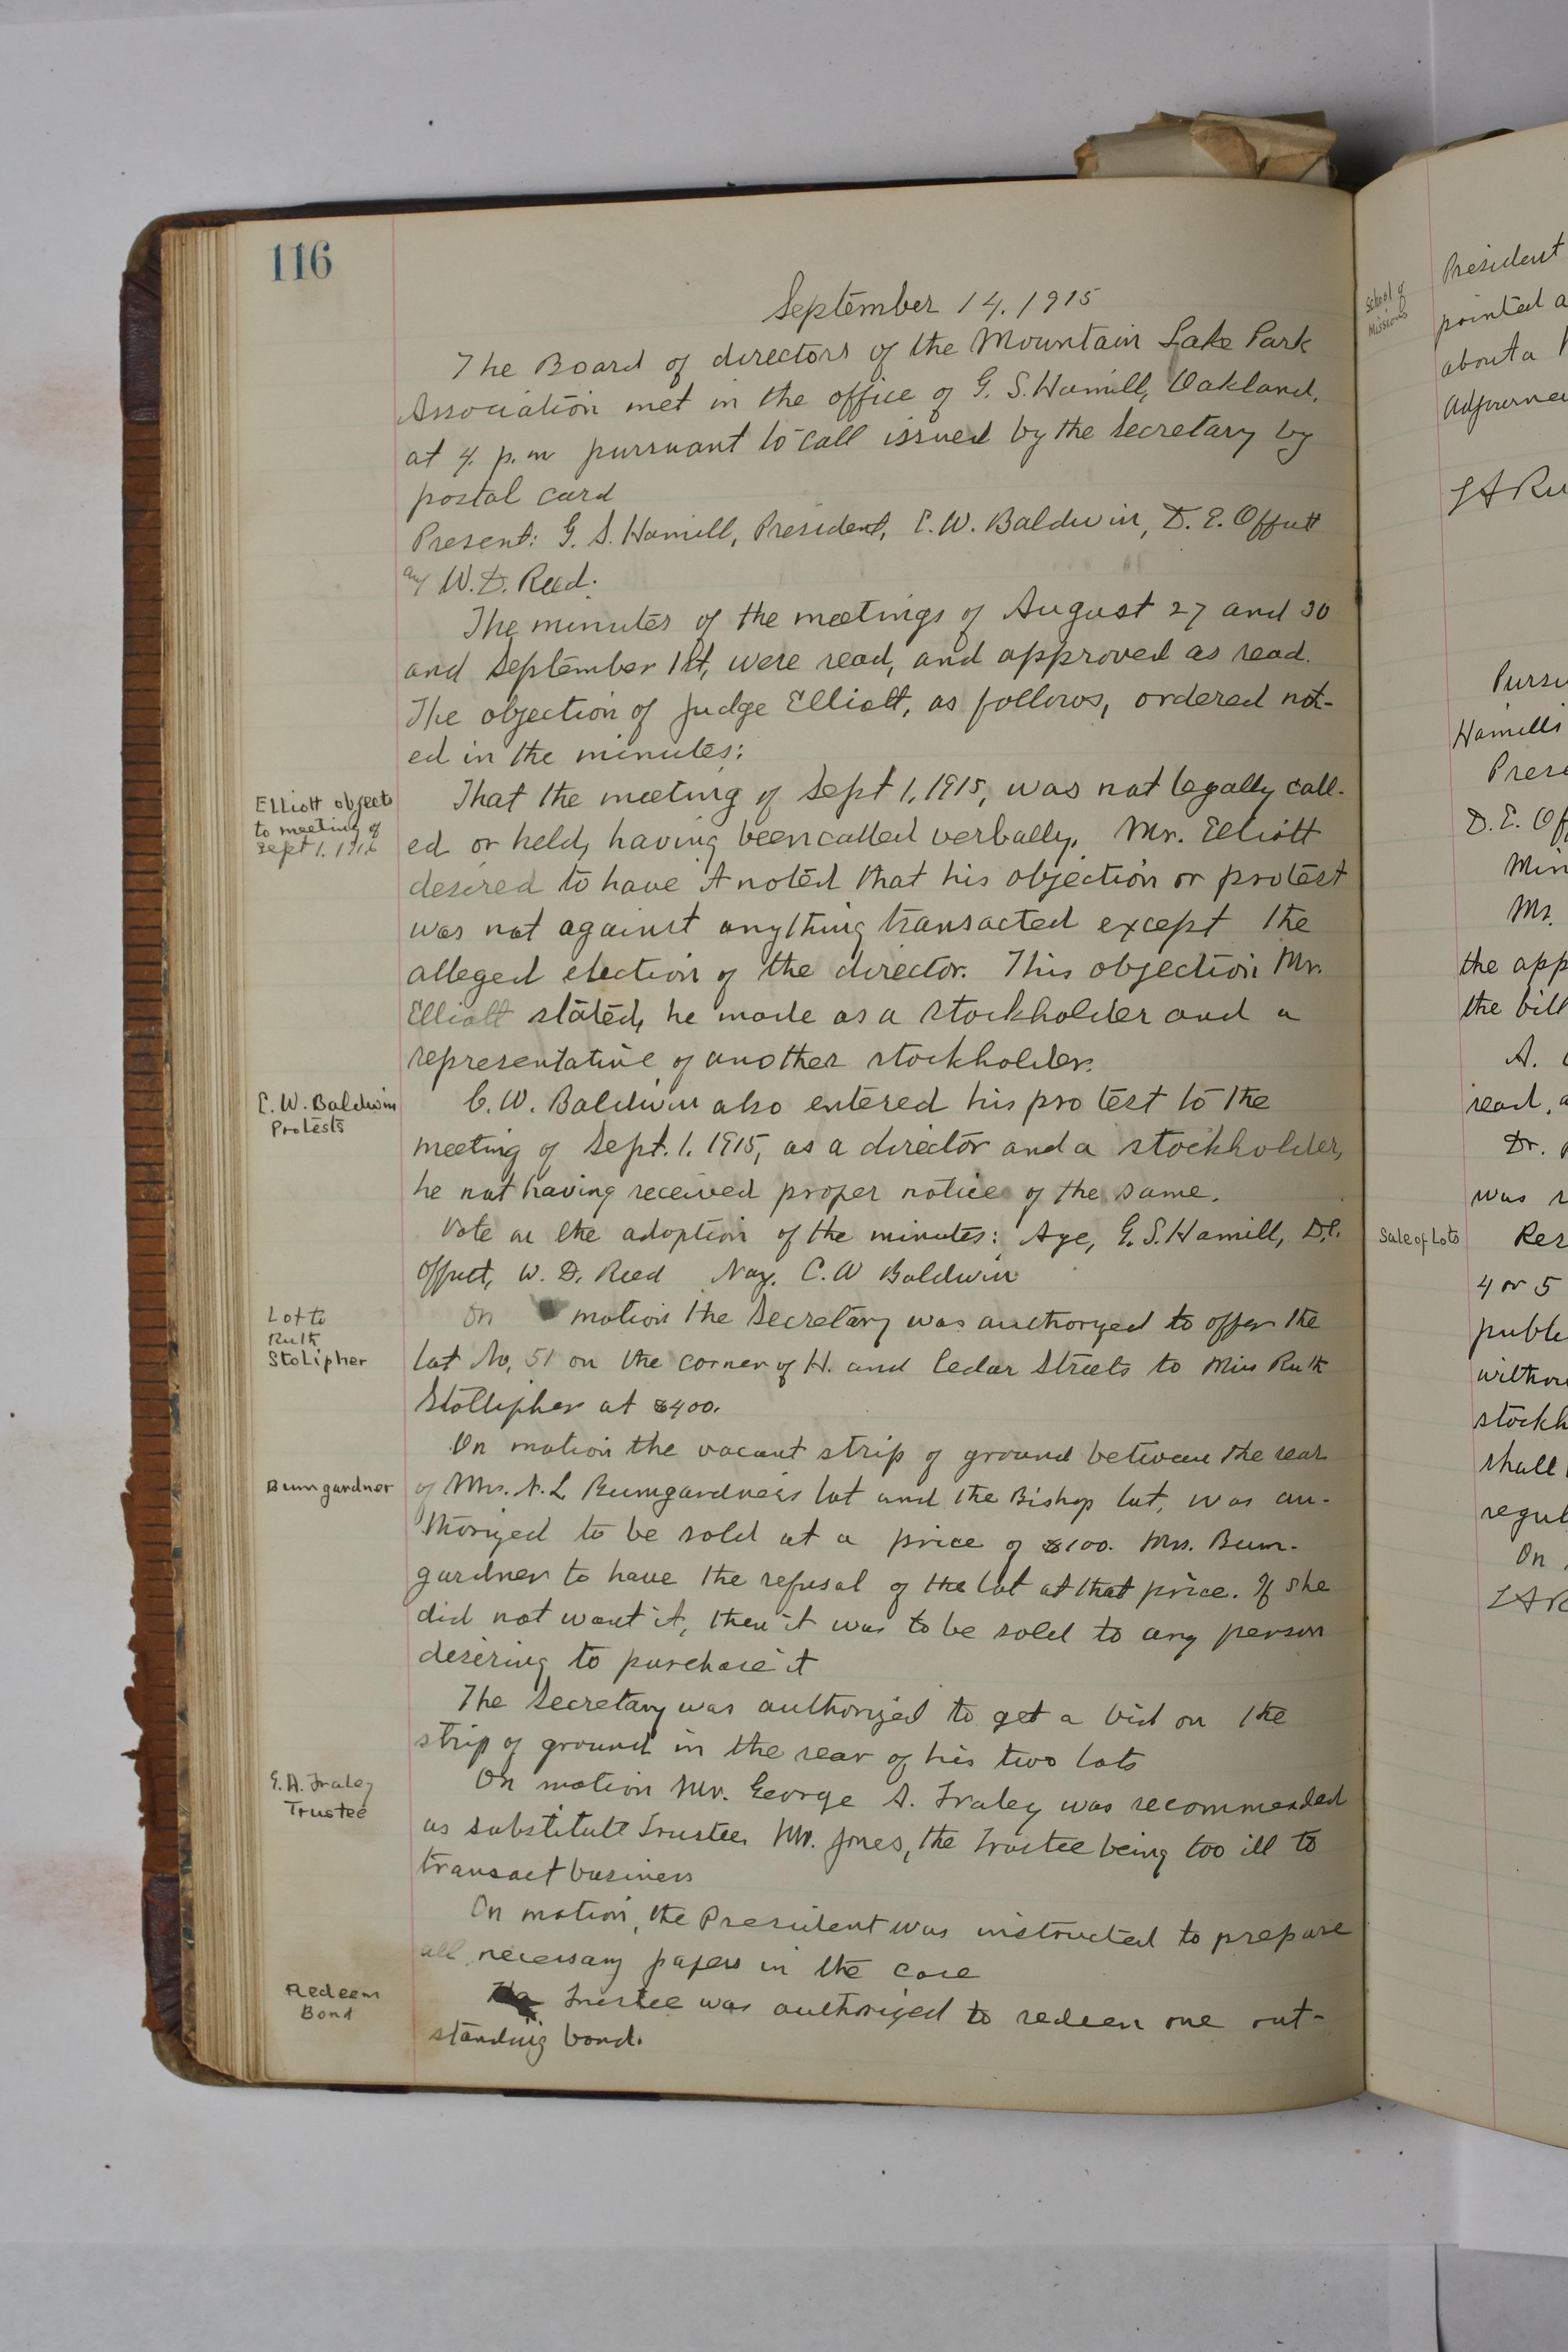 116
September 14, 1915
The Board of directors of the Mountain Lake Park
Association met in the office of G. S. Hamill, Oakland,
at 4. p.m pursuant to call issued by the Secretary by
postal card
Present: G. S. Hamill, President, C. W. Baldwin, D. E. Offutt
W. D. Reed.
The minutes of the meetings of August 27 and 30
and September 1st, were read, and approved as read.
The objection of Judge Elliott, as follows, ordered not-
ed in the minutes:
Elliott objects
to meeting of
Sept 1. 1915
That the meeting of Sept 1, 1915, was not legally call-
ed or held, having been called verbally. Mr. Elliott
desired to have it noted that his objection or protest
was not against anything transacted except the
alleged election of the director. This objection Mr.
Elliott stated, he made as a stockholder and a
representative of another stockholder.
C. W. Baldwin
Protests
C. W. Baldwin also entered his protest to the
meeting of Sept. 1. 1915, as a director and a stockholder,
he not having received proper notice of the same.
Vote on the adoption of the minutes: Aye, G. S. Hamill, D. E.
Offutt, W. D. Reed Nay. C. W Baldwin
Lot to
Ruth
Stolipher
On motion the Secretary was authorized to offer the
lot No. 51 on the corner of H. and Cedar Streets to Miss Ruth
Stollipher at $400.
On motion the vacant strip of ground between the rear
Bumgardner
of Mrs. N. L. Bumgardner's lot and the Bishop lot, was au-
thorized to be sold at a price of $100. Mrs. Bum-
gardner to have the refusal of the lot at that price. If she
did not want it, then it was to be sold to any person
desiring to purchase it
The Secretary was authorized to get a bid on the
strip of ground in the rear of his two lots
G. A. Fraley
Trustee
On motion Mr. George A. Fraley was recommended
as substitute Trustee. Mr. Jones, the Trustee being too ill to
transact business
On motion, the President was instructed to prepare
all necessary papers in the case
Redeem
Bond
The Trustee was authorized to redeem one out-
standing bond.
School of
Missions
President
pointed a
about a
Adjourned
Hamills
D. E. Of
Mr.
the app
the bill
A.
read, a
Dr.
was
Sale of Lots
Res
4 or 5
publi
withou
stockh
shall
regul
On